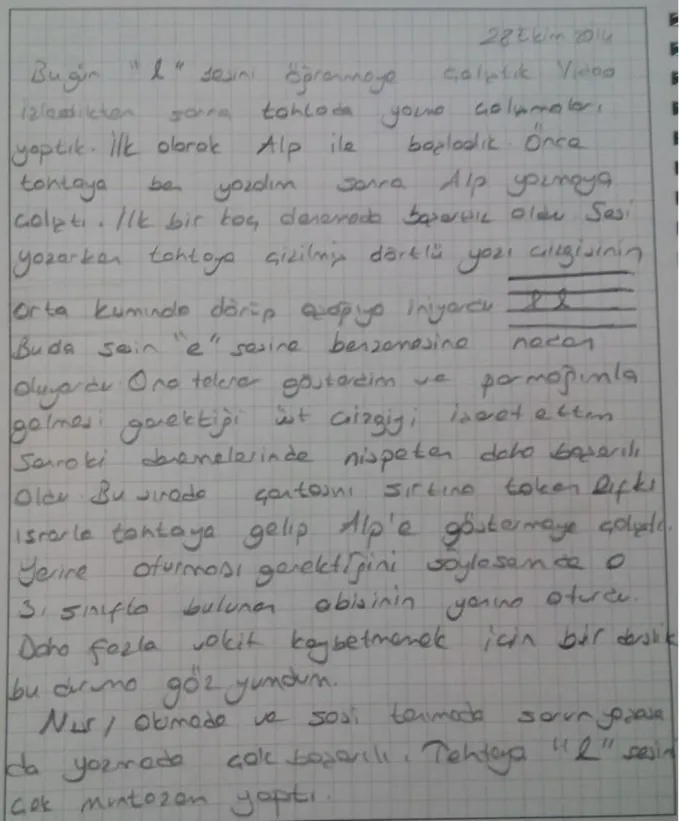 28 Ekim 2014
Bugün "l" sesini öğrenmeye çalıştık Video
izledikten sonra tahtada yazma çalışmaları
yaptık. İlk olarak Alp ile başladık. Önce
tahtaya ben yazdım sonra Alp yazmaya
çalıştı. İlk bir kaç denemede başarısız oldu Sesi
yazarken tahtaya çizilmiş dörtlü yazı çizgisinin
orta kısmında dönüp aşağıya iniyordu l l
Buda sesin "e" sesine benzemesine neden
oluyordu Ona tekrar gösterdim ve parmağımla
gelmesi gerektiği üst çizgiyi işaret ettim
Sonraki denemelerinde nispeten daha başarılı
oldu. Bu sırada çantasını sırtına takan Rıfkı
ısrarla tahtaya gelip Alp'e göstermeye çalıştı.
Yerine oturması gerektiğini söylesemde o
3. sınıfta bulunan abisinin yanına oturdu.
Daha fazla vakit kaybetmemek için bir derslik
bu duruma göz yumdum.
Nur, okumada ve sesi tanımada sorun yaşasa
da yazmada çok başarılı. Tahtaya "l" sesini
çok muntazam yaptı.